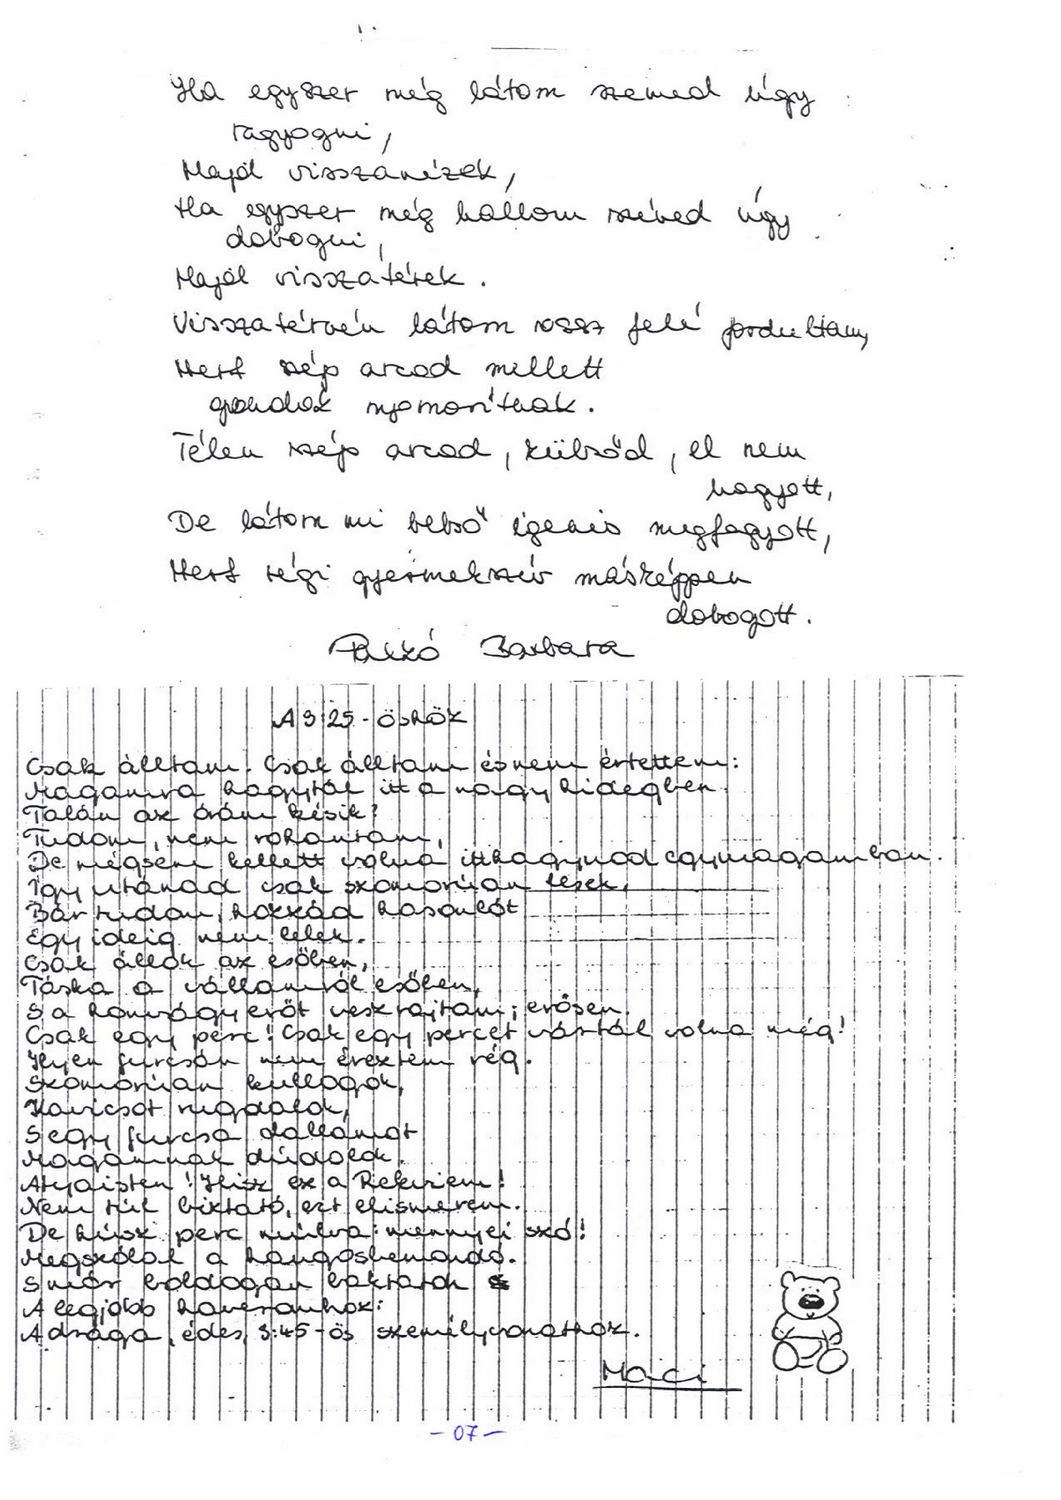 Ha egyszer még látom szemed úgy
ragyogni,
Majd visszanézek,
Ha egyszer még hallom szíved úgy
dobogni,
Majd visszatérek.
Visszatérvén látom rossz felé fordultam,
Mert szép arcod mellett
gondok nyomorítnak.
Télen szép arcod, külsőd, el nem
hagyott,
De látom mi belső igenis megfagyott,
Mert régi gyermekszív másképpen
dobogott.
Palkó Barbara
A 3:25-ösnök
Csak álltam. Csak álltam és nem értettem:
Magamra hagytál itt a nagy hidegben.
Talán az órám késik?
Tudom, nem rohantam,
De mégsem kellett volna itthagynod egymagamban.
Így utánad csak szomorúan lesek,
Bár tudom, hozzád hasonlót
Egy ideig nem lelek.
Csak állok az esőben,
Táska a vállamról esőben,
S a honvágy erőt vesz rajtam; erősen.
Csak egy perc! Csak egy percet vártál volna még!
Ilyen furcsán nem éreztem rég.
Szomorúan kullogok,
Kavicsot rugdalok,
S egy furcsa dallamot
Magamnak dúdolok.
Atyaisten! Hisz ez a Rekviem!
Nem túl biztató, ezt elismerem.
De húsz perc múlva: mennyei szó!
Megszólal a hangosbemondó.
S már boldogan baktatok
A legjobb haveromhoz:
A drága, édes, 3:45-ös személyvonathoz.
Maci
- 07 -